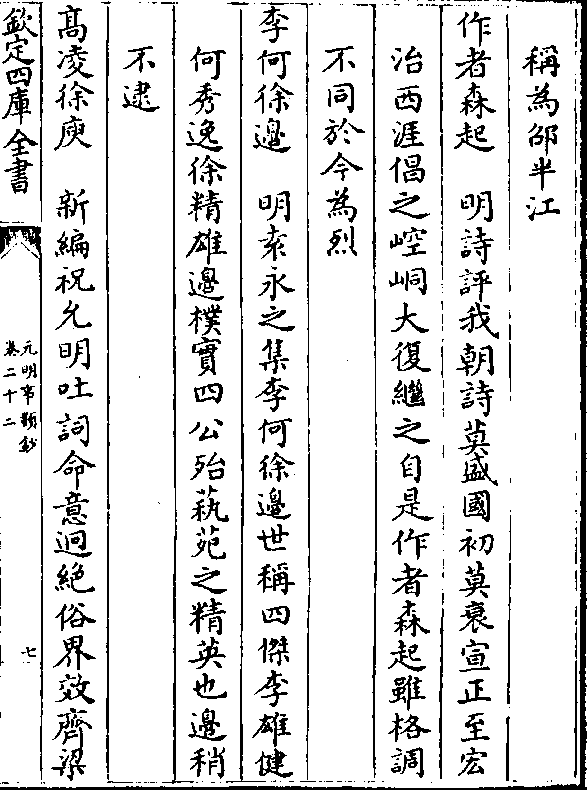 稱為邵半江
作者森起　明詩評我朝詩莫盛國初莫衰宣正至宏
治西涯倡之崆峒大復繼之自是作者森起雖格調
不同於今為烈
李何徐邊　明袁永之集李何徐邊世稱四傑李雄健
何秀逸徐精雄邊樸實四公殆蓺苑之精英也邊稍
不逮
髙凌徐庾　新編祝允明吐詞命意迥絶俗界效齊梁
欽定四庫全書
元明事類鈔
卷二十二
七